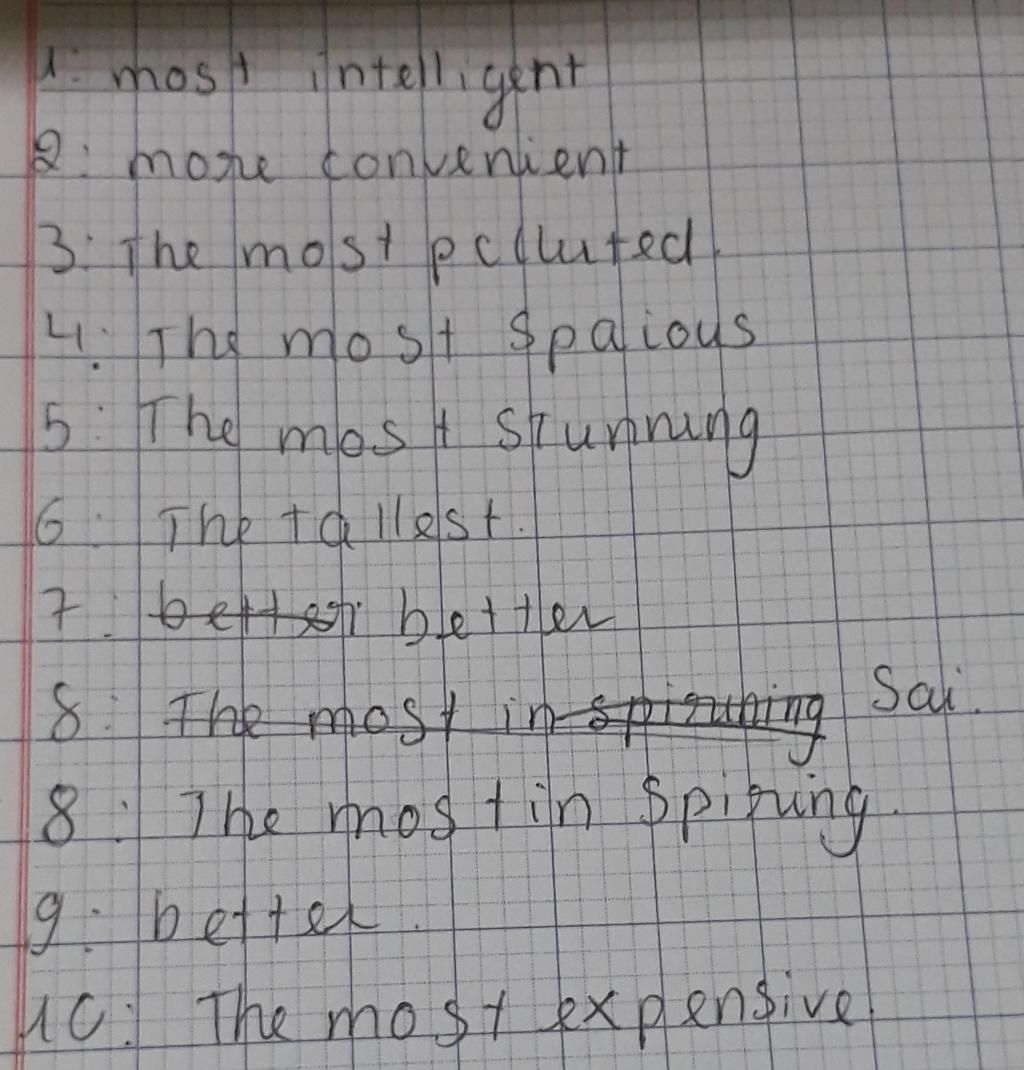 1: most intelligent
2: more convenient
3: The most polluted
4: The most spaious
5: The most stunning
6: The tallest.
7: better better
8: The most in spiruning Sai.
8: The most in spiring.
9: better.
10: The most expensive